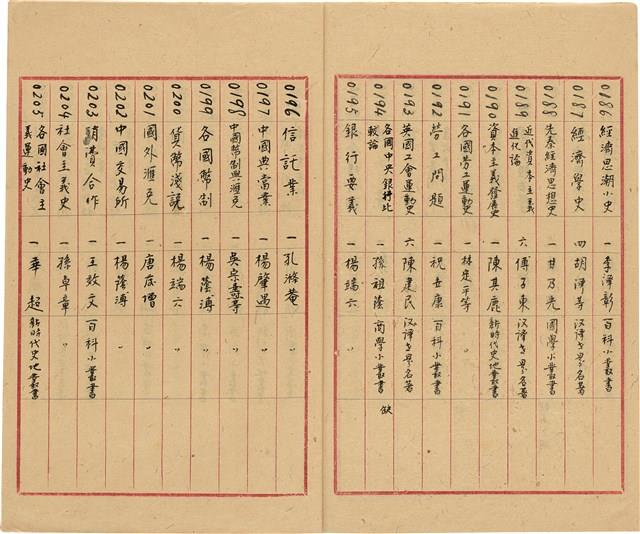 0186 經濟思潮小史 一 李澤彰 百科小叢書
0187 經濟學史 四 胡澤等 汉譯世界名著
0188 先秦經濟思想史 一 甘乃光 國學小叢書
0189 近代資本主義進化論 六 傅子東 汉譯世界名著
0190 資本主義發展史 一 陳其鹿 新時代史地叢書
0191 各國勞工運動史 一 林定平等 〃
0192 勞工問題 一 祝世康 百科小叢書
0193 英國工會運動史 六 陳建民 汉譯世界名著
0194 各國中央銀行比較論 一 孫祖蔭 商學小叢書 缺
0195 銀行要義 一 楊端六 〃
0196 信託業 一 孔滌菴 〃
0197 中國典當業 一 楊肇遇 〃
0198 中國幣制與滙兌 一 吳宗燾等 〃
0199 各國幣制 一 楊蔭溥 〃
0200 貨幣淺說 一 楊端六 〃
0201 國外滙兌 一 唐慶增 〃
0202 中國交易所 一 楊蔭溥 〃
0203 消費合作 一 王效文 百科小叢書
0204 社會主義史 一 孫卓章 〃
0205 各國社會主義運動史 一 華超 新時代史地叢書